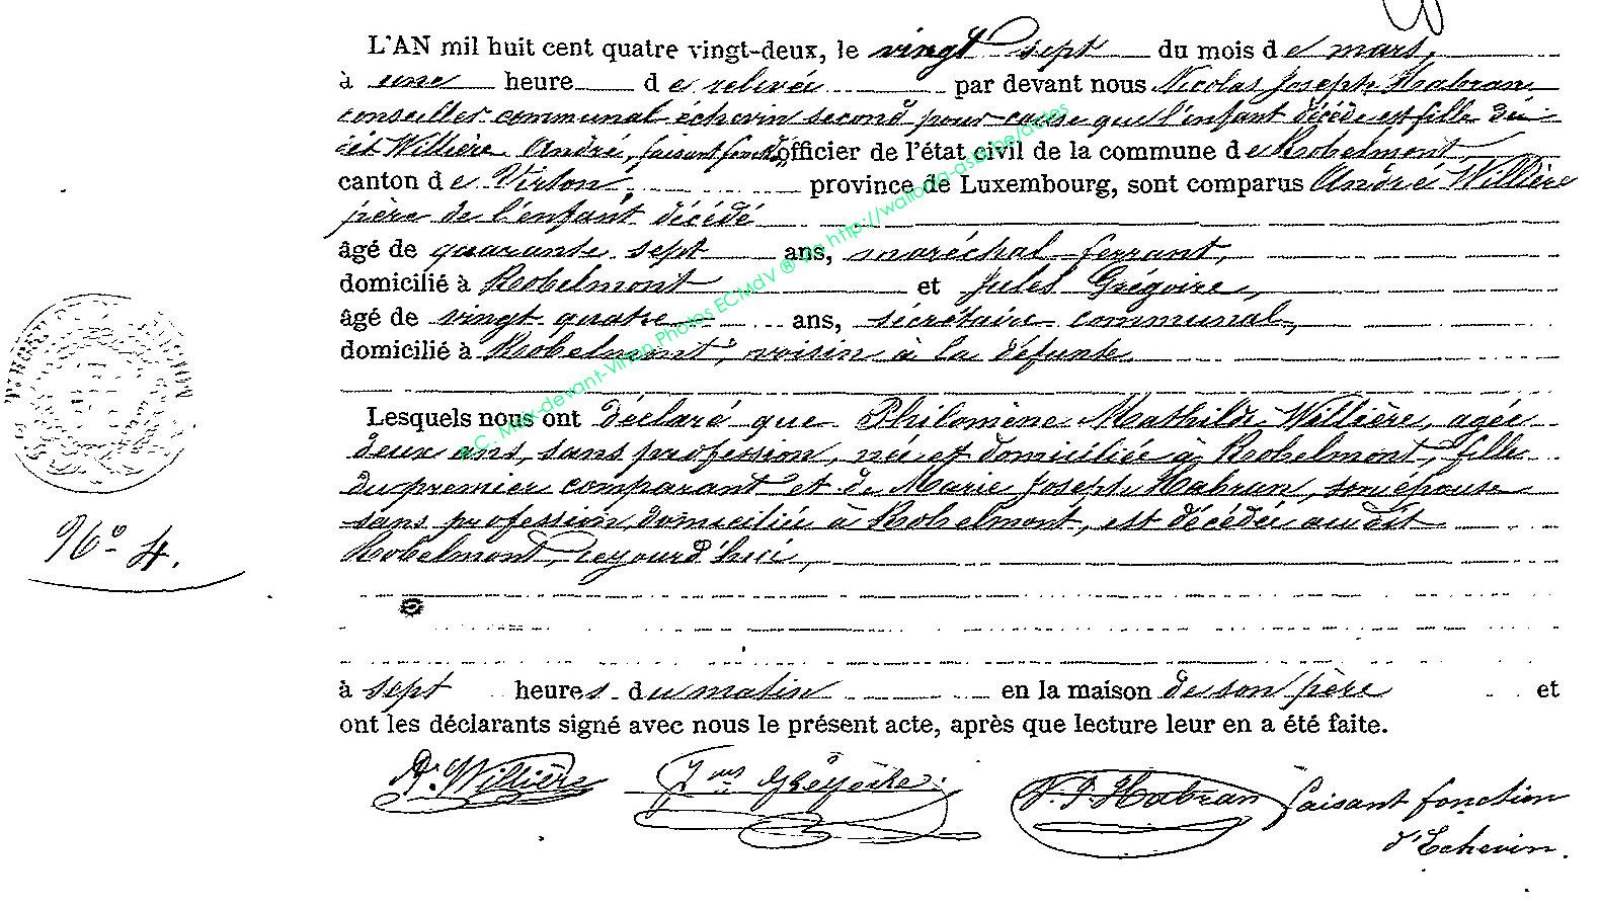 L'AN mil huit cent quatre vingt-deux, le vingt sept du mois de mars,
à une heure de relevée par devant nous Nicolas Joseph Habran
conseiller communal échevin second pour cause que l'enfant décédé est fille
Willière André, faisant fonct. d'officier de l'état civil de la commune de Robelmont,
canton de Virton, province de Luxembourg, sont comparus André Willière
père de l'enfant décédé
âgé de quarante sept ans, maréchal-ferrant,
domicilié à Robelmont et Jules Grégoire,
âgé de vingt quatre ans, sécrétaire communal,
domicilié à Robelmont, voisin à la défunte
Lesquels nous ont déclaré que Philomène Mathilde Willière, agée
deux ans, sans profession, née et domiciliée à Robelmont, fille
du premier comparant et de Marie Joseph Habran, son épouse
sans profession, domiciliée à Robelmont, est décédée audit
Robelmont, cejourd'hui,
N° 4.
à sept heures du matin en la maison de son père et
ont les déclarants signé avec nous le présent acte, après que lecture leur en a été faite.
A. Willière Jules Grégoire N. J. Habran faisant fonction
d'Echevin.
E.C. Meix-devant-Virton Photos ECMdV ® via http://wallonia-asbl.be/actes